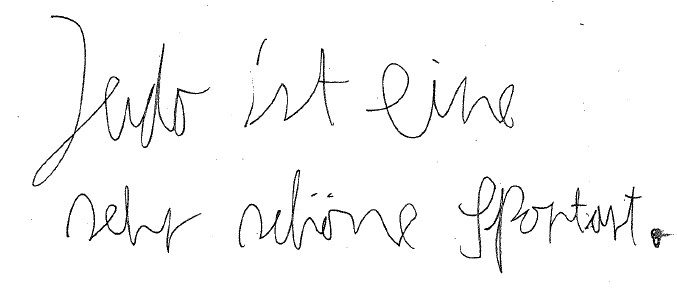 Judo ist eine
sehr schöne Sportart.